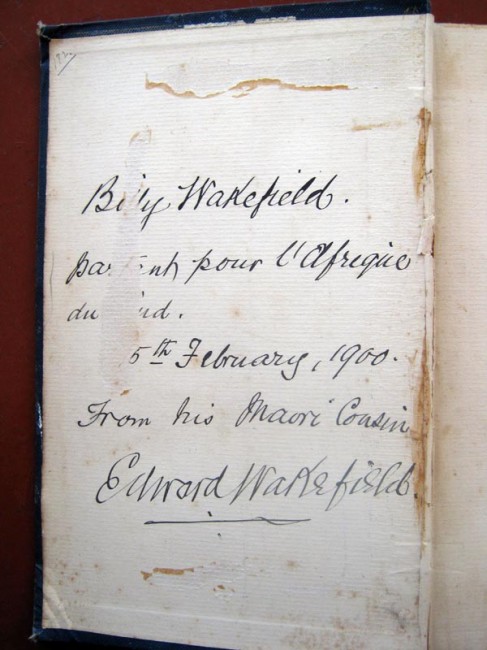 Billy Wakefield.
partant pour l'Afrique
du Sud.
5th February, 1900.
From his Maori Cousin
Edward Wakefield.